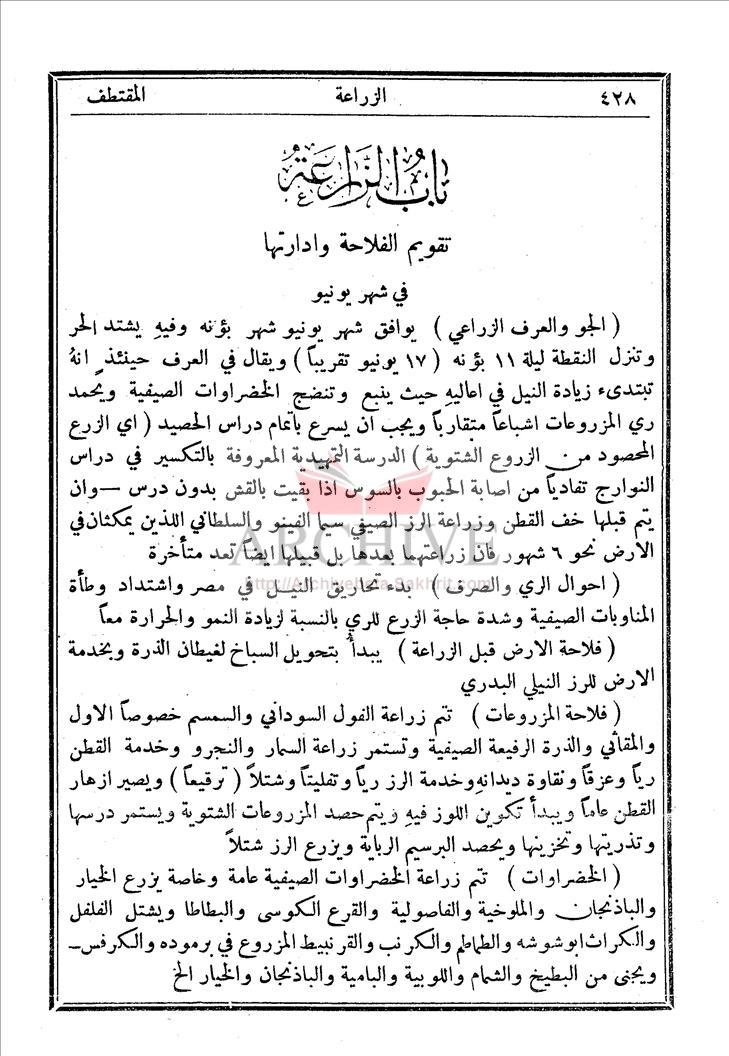 ٤٢٨ الزراعة المقتطف
باب الزراعة
تقويم الفلاحة وادارتها
في شهر يونيو
( الجو والعرف الزراعي ) يوافق شهر يونيو شهر بؤنه وفيهِ يشتد الحر
وتنزل النقطة ليلة ١١ بؤنه ( ١٧ يونيو تقريباً ) ويقال في العرف حينئذٍ انهُ
تبتدىء زيادة النيل في اعاليهِ حيث ينبع وتنضج الخضراوات الصيفية ويحمد
ري المزروعات اشباعاً متقارباً ويجب ان يسرع باتمام دراس الحصيد ( اي الزرع
المحصود من الزروع الشتوية ) الدرسة التمهيدية المعروفة بالتكسير في دراس
النوارج تفادياً من اصابة الحبوب بالسوس اذا بقيت بالقش بدون درس — وان
يتم قبلها خف القطن وزراعة الرز الصيفي سيما الفينو والسلطاني اللذين يمكثان في
الارض نحو ٦ شهور فان زراعتهما بعدها بل قبيلها ايضاً تعد متأخرة
ARCHIVE
http://Archivebeta.Sakhrit.com
( احوال الري والصرف ) بدء تحاريق النيل في مصر واشتداد وطأة
المناوبات الصيفية وشدة حاجة الزرع للري بالنسبة لزيادة النمو والحرارة معاً
( فلاحة الارض قبل الزراعة ) يبدأ بتحويل السباخ لغيطان الذرة وبخدمة
الارض للرز النيلي البدري
( فلاحة المزروعات ) تتم زراعة الفول السوداني والسمسم خصوصاً الاول
والمقاثي والذرة الرفيعة الصيفية وتستمر زراعة السمار والنجرو وخدمة القطن
رياً وعزقاً ونقاوة ديدانهِ وخدمة الرز رياً وتفليتاً وشتلاً ( ترقيعاً ) ويصير ازهار
القطن عاماً ويبدأ تكوين اللوز فيهِ ويتم حصد المزروعات الشتوية ويستمر درسها
وتذريتها وتخزينها ويحصد البرسيم الرباية ويزرع الرز شتلاً
( الخضراوات ) تتم زراعة الخضراوات الصيفية عامة وخاصة يزرع الخيار
والباذنجان والملوخية والفاصولية والقرع الكوسى والبطاطا ويشتل الفلفل
والكراث ابو شوشه والطماطم والكرنب والقرنبيط المزروع في برموده والكرفس—
ويجنى من البطيخ والشمام واللوبية والبامية والباذنجان والخيار الخ